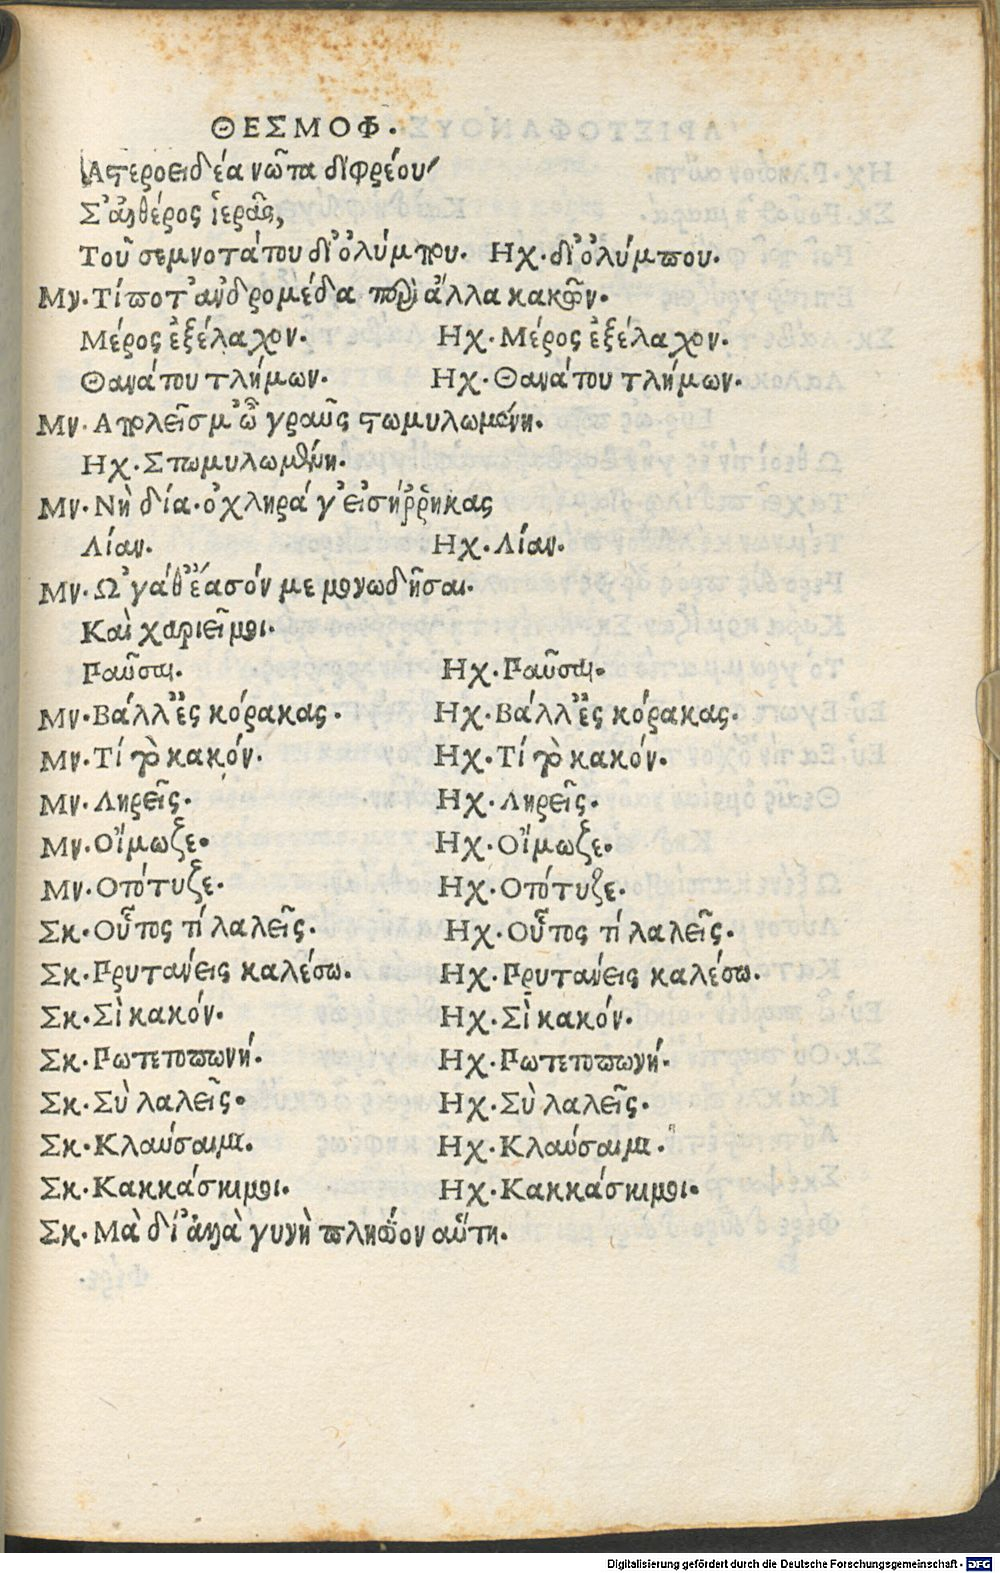 ΘΕΣΜΟΦ.
Αστεροειδέα νῶτα διφρέου
Σ' αἰθέρος ἱερᾶς,
Τοῦ σεμνοτάτου δι' ὀλύμπου. Ηχ. δι' ὀλύμπου.
Μν. Τί ποτ' ἀνδρομέδα περὶ ἄλλα κακῶν.
Μέρος ἐξέλαχον. Ηχ. Μέρος ἐξέλαχον.
Θανάτου τλήμων. Ηχ. Θανάτου τλήμων.
Μν. Απολεῖς μ' ὦ γραῦς στωμυλωμένη.
Ηχ. Στωμυλωμένη.
Μν. Νὴ δία. ὀχληρά γ' εἰσήῤῥηκας
Λίαν. Ηχ. Λίαν.
Μν. Ω'γάθ' ἔασόν με μονωδῆσαι.
Καὶ χαριεῖ μοι.
Παῦσαι. Ηχ. Παῦσαι.
Μν. Βάλλ' ἐς κόρακας. Ηχ. Βάλλ' ἐς κόρακας.
Μν. Τί τὸ κακόν. Ηχ. Τί τὸ κακόν.
Μν. Ληρεῖς. Ηχ. Ληρεῖς.
Μν. Οἴμωζε. Ηχ. Οἴμωζε.
Μν. Οτότυζε. Ηχ. Οτότυζε.
Σκ. Οὗτος τί λαλεῖς. Ηχ. Οὗτος τί λαλεῖς.
Σκ. Πρυτανεις καλέσω. Ηχ. Πρυτάνεις καλέσω.
Σκ. Σὶ κακόν. Ηχ. Σὶ κακόν.
Σκ. Πωτετοπωνή. Ηχ. Πωτετοπωνή.
Σκ. Σὺ λαλεῖς. Ηχ. Σὺ λαλεῖς.
Σκ. Κλαύσαιμι. Ηχ. Κλαύσαιμι.
Σκ. Κακκάσκιμοι. Ηχ. Κακκάσκιμοι.
Σκ. Μὰ δί' ἀλλὰ γυνὴ πλησίον αὕτη.
Digitalisierung gefördert durch die Deutsche Forschungsgemeinschaft - DFG